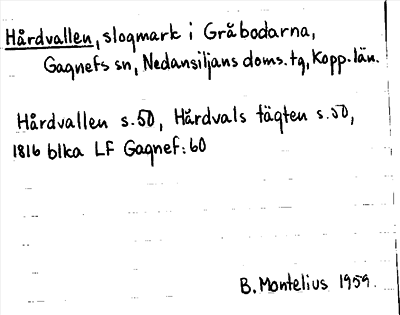 Hårdvallen, slogmark i Gråbodarna,
Gagnefs sn, Nedansiljans doms.tg, Kopp.län.
Hårdvallen s.50, Hårdvals tägten s.50,
1816 blka LF Gagnef:60
B. Montelius 1959.